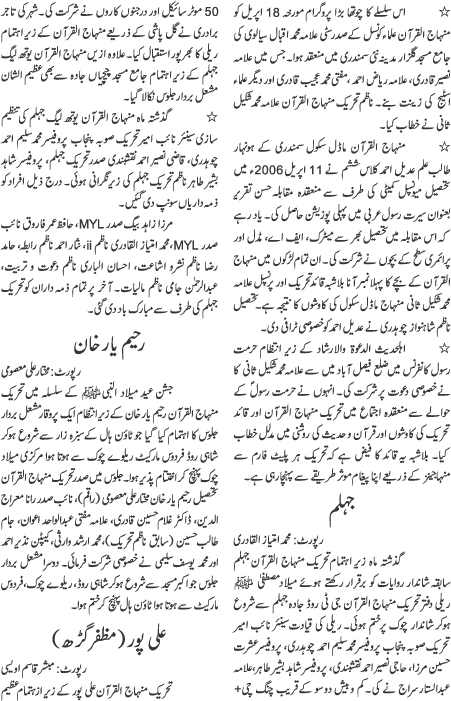 ☆ اس سلسلے کا چوتھا بڑا پروگرام مورخہ 18 اپریل کو
منہاج القرآن علماء کونسل کے صدر سٹی علامہ محمد اقبال سیالوی کی
جامع مسجد گلزار مدینہ نئی سمندری میں منعقد ہوا۔ جس میں علامہ
نصیر قادری، علامہ ریاض احمد، مفتی محمد عجیب قادری اور دیگر علماء
اسٹیج کی زینت بنے۔ ناظم تحریک منہاج القرآن علامہ محمد شکیل
ثانی نے خطاب کیا۔
☆ منہاج القرآن ماڈل سکول سمندری کے ہونہار
طالب علم عدیل احمد کلاس ششم نے 11 اپریل 2006ء میں
تحصیل میونسپل کمیٹی کی طرف سے منعقدہ مقابلہ حسن تقریر
بعنوان سیرت رسول عربی میں پہلی پوزیشن حاصل کی۔ یاد رہے
کہ اس مقابلہ میں تحصیل بھر سے میٹرک، ایف اے، مڈل اور
پرائمری سطح کے بچوں نے شرکت کی۔ ان تمام لڑکوں میں منہاج
القرآن کے بچے کا پہلا نمبر آنا بلاشبہ قائد تحریک اور پرنسپل علامہ
محمد شکیل ثانی منہاج القرآن ماڈل سکول کی کاوشوں کا نتیجہ ہے۔ تحصیل
ناظم شاہنواز چوہدری نے عدیل احمد کو خصوصی ٹرافی دی۔
☆ الحدیث الدعوۃ والارشاد کے زیر انتظام حرمت
رسول کانفرنس میں ضلع فیصل آباد میں سے علامہ محمد شکیل ثانی کا
نے خصوصی دعوت پر شرکت کی۔ اور انہوں نے حرمت رسولؐ کے
حوالے سے منعقدہ اجتماع میں تحریک منہاج القرآن اور قائد
تحریک کی کاوشوں اور قرآن وحدیث کی روشنی میں مدلل خطاب
کیا۔ بلاشبہ یہ قائد کا فیض ہے کہ تحریک ہر پلیٹ فارم سے
منہاجینز کے ذریعے اپنا پیغام موثر طریقے سے پہنچا رہی ہے۔
جہلم
رپورٹ: محمد امتیاز القادری
گذشتہ ماہ زیر اہتمام تحریک منہاج القرآن جہلم
سابقہ شاندار روایات کو برقرار رکھتے ہوئے میلاد مصطفیٰ ﷺ
ریلی دفتر تحریک منہاج القرآن جی ٹی روڈ جادہ جہلم سے شروع
ہو کر شاندار چوک پر ختم ہوئی۔ ریلی کی قیادت سینئر نائب امیر
تحریک صوبہ پنجاب پروفیسر محمد سلیم احمد چوہدری، پروفیسر عشرت
حسین مرزا، حاجی نصیر احمد نقشبندی، پروفیسر شاہد بشیر طاہر، علامہ
عبدالستار سراج نے کی۔ کم و بیش دوسو کے قریب چنگ چی+
50 موٹر سائیکل اور درجنوں کاروں نے شرکت کی۔ شہر کی تاجر
برادری نے گل پاشی کے ذریعے منہاج القرآن کے زیر اہتمام
ریلی کا بھرپور استقبال کیا۔ علاوہ ازیں منہاج القرآن یوتھ لیگ
جہلم کے زیر اہتمام جامع مسجد پنچپیاں جادہ سے بھی عظیم الشان
مشعل بردار جلوس نکالا گیا۔
☆ گذشتہ ماہ منہاج القرآن یوتھ لیگ جہلم کی تنظیم
سازی سینئر نائب امیر تحریک صوبہ پنجاب پروفیسر محمد سلیم احمد
چوہدری، قاضی نصیر احمد نقشبندی صدر تحریک جہلم، پروفیسر شاہد
بشیر طاہر ناظم تحریک جہلم کی زیر نگرانی ہوئی۔ درج ذیل افراد کو
ذمہ داریاں سونپ دی گئیں۔
مرزا زاہد بیگ صدر MYL، حافظ عمر فاروق نائب
صدر MYL، محمد امتیاز القادری ناظم ii، نثار احمد ناظم رابطہ، حامد
رضا ناظم نشر و اشاعت، احسان الباری ناظم دعوت و تربیت،
عبدالرحمٰن جامی ناظم مالیات۔ آخر پر تمام ذمہ داران کو تحریک
جہلم کی طرف سے مبارک باد دی گئی۔
رحیم یار خان
رپورٹ: مختار علی معصومی
جشن عید میلاد النبی ﷺ کے سلسلہ میں تحریک
منہاج القرآن رحیم یار خان کے زیر انتظام ایک پروقار مشعل بردار
جلوس کا اہتمام کیا گیا جو ٹاؤن ہال کے سبزہ زار سے شروع ہو کر
شاہی روڈ فردوس مارکیٹ ریلوے چوک سے ہوتا ہوا مرکزی میلاد
چوک پہنچ کر اختتام پذیر ہوا۔ جلوس میں صدر تحریک منہاج القرآن
تحصیل رحیم یار خان مختار علی معصومی (راقم)، نائب صدر رانا معراج
الدین، ڈاکٹر غلام حسین قادری، علامہ مفتی عبدالواحد اعوان، جام
طالب حسین (سابق ناظم تحریک)، محمد ارشد وارثی، کیپٹن نذیر احمد
اور محمد یوسف سلیمی نے خصوصی شرکت فرمائی۔ دوسرا مشعل بردار
جلوس جو اکبر مسجد سے شروع ہو کر شاہی روڈ، ریلوے چوک، فردوس
مارکیٹ سے ہوتا ہوا ٹاؤن ہال پہنچ کر ختم ہوا۔
علی پور (مظفر گڑھ)
رپورٹ: مبشر قاسم اویسی
تحریک منہاج القرآن علی پور کے زیر اہتمام عظیم